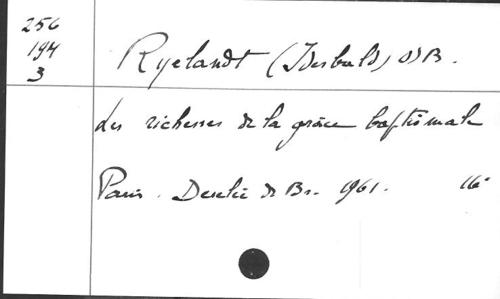 256
194
3
Ryelandt (Idesbald) OSB.
Les richesses de la grâce baptismale
Paris. Desclée de Br. 1961. 16°